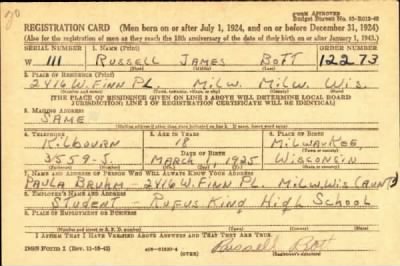 30
FORM APPROVED
Budget Bureau No. 33-R012-42
REGISTRATION CARD (Men born on or after July 1, 1924, and on or before December 31, 1924)
(Also for the registration of men as they reach the 18th anniversary of the date of their birth on or after January 1, 1943.)
SERIAL NUMBER 1. NAME (Print) ORDER NUMBER
W 111 RUSSELL JAMES BOTT 12273
(First) (Middle) (Last)
2. PLACE OF RESIDENCE (Print)
2416 W. FINN PL. MILW. MILW. WIS.
(Number and street) (Town, township, village, or city) (County) (State)
(THE PLACE OF RESIDENCE GIVEN ON LINE 2 ABOVE WILL DETERMINE LOCAL BOARD
JURISDICTION; LINE 2 OF REGISTRATION CERTIFICATE WILL BE IDENTICAL)
3. MAILING ADDRESS
SAME
(Mailing address if other than place indicated on line 2. If same, insert word same)
4. TELEPHONE 5. AGE IN YEARS 6. PLACE OF BIRTH
KILBOURN 18 MILWAUKEE
DATE OF BIRTH (Town or county)
3559-J. MARCH 1, 1925 WISCONSIN
(Exchange) (Number) (Mo.) (Day) (Yr.) (State or country)
7. NAME AND ADDRESS OF PERSON WHO WILL ALWAYS KNOW YOUR ADDRESS
PAULA BRUHM - 2416 W. FINN PL. MILW. WIS (AUNT)
8. EMPLOYER'S NAME AND ADDRESS
STUDENT - RUFUS KING HIGH SCHOOL
9. PLACE OF EMPLOYMENT OR BUSINESS
(Number and street or R. F. D. number) (Town) (County) (State)
I AFFIRM THAT I HAVE VERIFIED ABOVE ANSWERS AND THAT THEY ARE TRUE.
DSS FORM 1 (Rev. 11-16-42) (OVER) Russell Bott